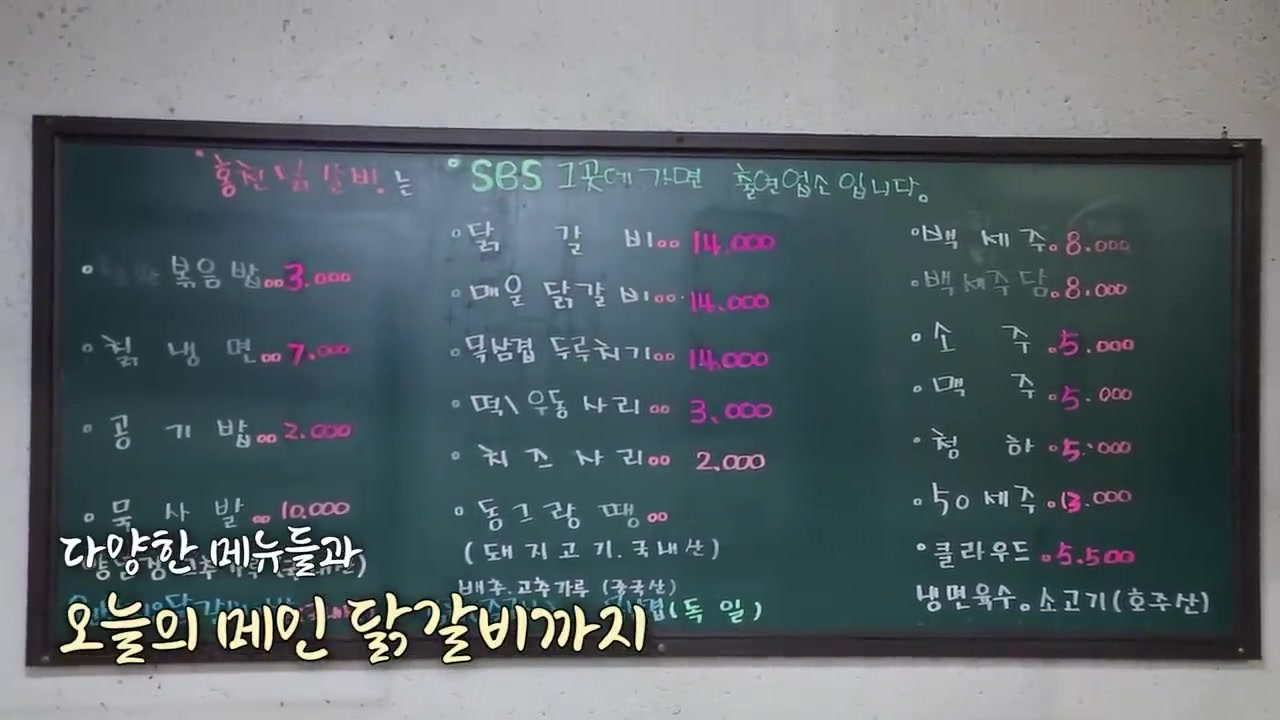 홍천닭갈비는 SBS 그곳에 가면 출연업소입니다.
볶음밥 3.000
칡냉면 7.000
공기밥 2.000
묵사발 10.000
닭갈비 14.000
매일 닭갈비 14.000
목삼겹 두루치기 14.000
떡\우동사리 3.000
치즈사리 2.000
동그랑땡
(돼지고기.국내산)
배추.고추가루 (중국산)
(독일)
백세주 8.000
백세주담 8.000
소주 5.000
맥주 5.000
청하 5.000
50세주 13.000
클라우드 5.500
냉면육수.소고기(호주산)
다양한 메뉴들과
오늘의 메인 닭갈비까지